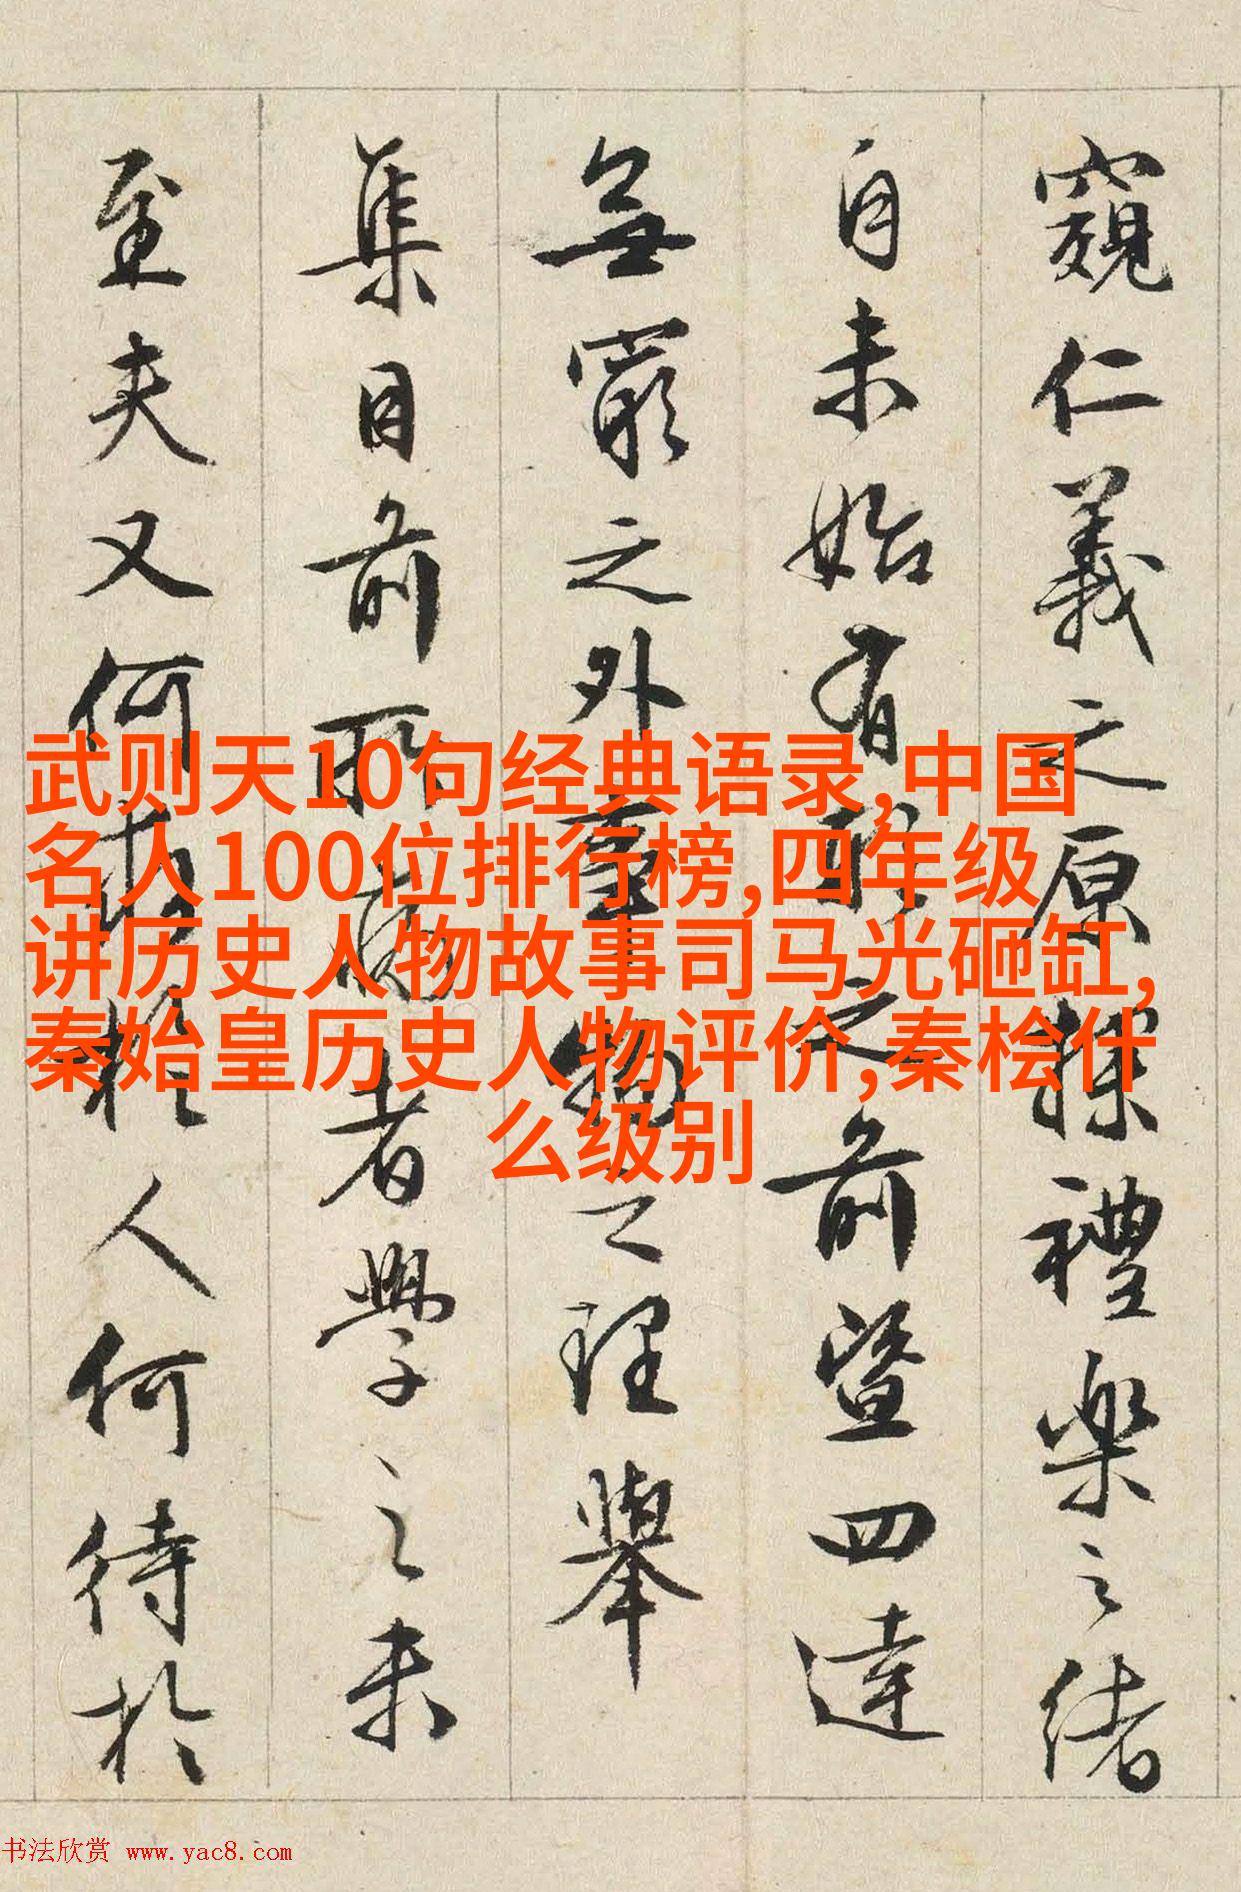 窺仁義之原探禮樂之緒
自未始有形之前暨四達
無窮之外事物之理舉
集目前所病者學之未
至夫又何求於人何待於
武则天10句经典语录,中国
名人100位排行榜,四年级
讲历史人物故事司马光砸缸,
秦始皇历史人物评价,秦桧什
么级别
书法欣赏 www.yac8.com